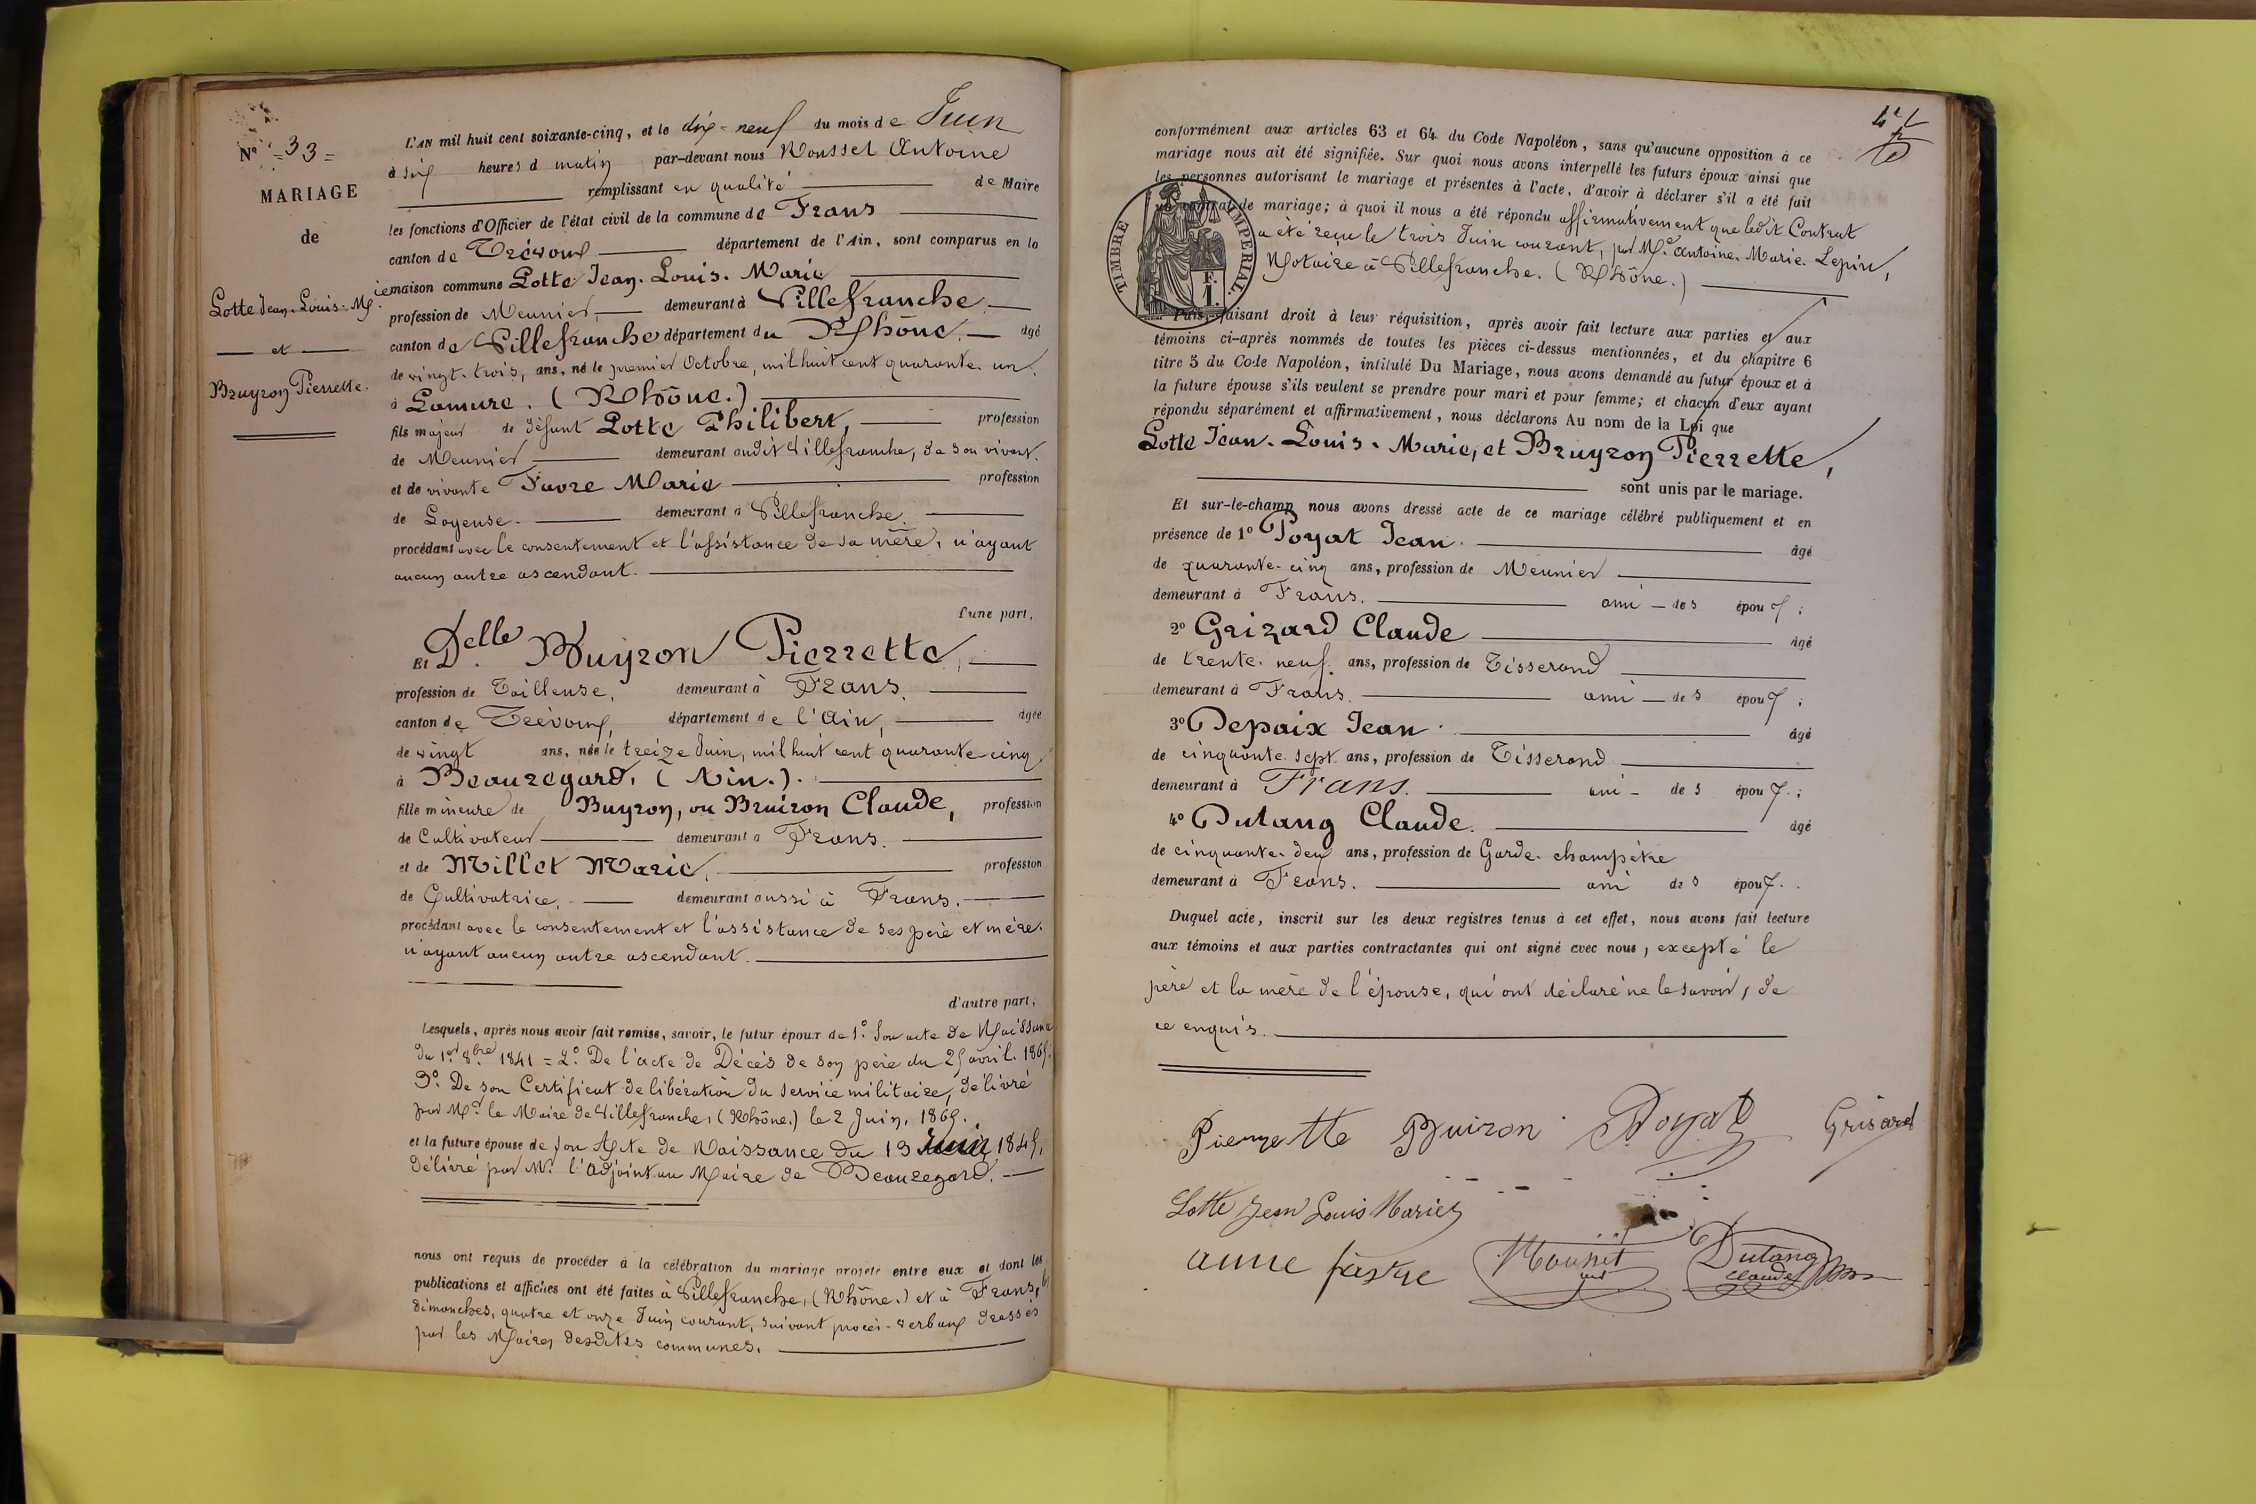 N° = 33 =
MARIAGE
de
Lotte Jean-Louis-Mie.
et
Bruyron Pierrette.
L'AN mil huit cent soixante-cinq, et le dix-neuf du mois de Juin
à six heures d matin par-devant nous Rousset Antoine
remplissant en qualité de Maire
les fonctions d'Officier de l'état civil de la commune de Frans
canton de Trévoux département de l'Ain, sont comparus en la
maison commune Lotte Jean-Louis-Marie
profession de Meunier, demeurant à Villefranche.
canton de Villefranche département du Rhône. âgé
de vingt-trois, ans, né le premier Octobre, mil huit cent quarante-un,
à Lamure. (Rhône.)
fils majeur de défunt Lotte Philibert, profession
de Meunier demeurant audit Villefranche, de son vivant.
et de vivante Favre Marie profession
de Loyeuse. demeurant à Villefranche.
procédant avec le consentement et l'assistance de sa mère, n'ayant
aucun autre ascendant.
d'une part,
Et Delle Buyron Pierrette,
profession de Tailleuse, demeurant à Frans.
canton de Trévoux, département de l'Ain, âgée
de vingt ans, née le treize Juin, mil huit cent quarante-cinq
à Beauregard, (Ain.).
fille mineure de Buyron, ou Bruiron Claude, profession
de Cultivateur demeurant à Frans.
et de Millet Marie, profession
de Cultivatrice, demeurant aussi à Frans.
procédant avec le consentement et l'assistance de ses père et mère.
n'ayant aucun autre ascendant.
d'autre part,
Lesquels, après nous avoir fait remise, savoir, le futur époux de 1° Son acte de Naissance
du 1er 8bre 1841 = 2° De l'acte de Décès de son père du 25 avril 1865.
3° De son Certificat de libération du service militaire, délivré
par Mr le Maire de Villefranche, (Rhône.) le 2 Juin, 1865.
et la future épouse de Son Acte de Naissance du 13 Juin 1845,
délivré par Mr l'Adjoint au Maire de Beauregard.
nous ont requis de procéder à la célébration du mariage projeté entre eux et dont les
publications et affiches ont été faites à Villefranche, (Rhône.) et à Frans,
dimanches, quatre et onze Juin courant, suivant procès-verbaux dressés
par les Maires desdites communes.
conformément aux articles 63 et 64 du Code Napoléon, sans qu'aucune opposition à ce
mariage nous ait été signifiée. Sur quoi nous avons interpellé les futurs époux ainsi que
les personnes autorisant le mariage et présentes à l'acte, d'avoir à déclarer s'il a été fait
un contrat de mariage; à quoi il nous a été répondu affirmativement que ledit Contrat
a été reçu le trois Juin courant, par Me Antoine-Marie Lepin,
Notaire à Villefranche. (Rhône.)
TIMBRE IMPERIAL.
F.
1.
Puis, faisant droit à leur réquisition, après avoir fait lecture aux parties et aux
témoins ci-après nommés de toutes les pièces ci-dessus mentionnées, et du chapitre 6
titre 5 du Code Napoléon, intitulé Du Mariage, nous avons demandé au futur époux et à
la future épouse s'ils veulent se prendre pour mari et pour femme; et chacun d'eux ayant
répondu séparément et affirmativement, nous déclarons Au nom de la Loi que
Lotte Jean-Louis-Marie, et Bruyron Pierrette,
sont unis par le mariage.
Et sur-le-champ nous avons dressé acte de ce mariage célébré publiquement et en
présence de 1° Poyat Jean. âgé
de quarante-cinq ans, profession de Meunier
demeurant à Frans. ami des époux;
2° Grizard Claude âgé
de trente-neuf ans, profession de Tisserand
demeurant à Frans. ami des époux;
3° Depaix Jean. âgé
de cinquante-sept ans, profession de Tisserand
demeurant à Frans. ami des époux;
4° Dutang Claude. âgé
de cinquante-deux ans, profession de Garde-champêtre
demeurant à Frans. ami des époux.
Duquel acte, inscrit sur les deux registres tenus à cet effet, nous avons fait lecture
aux témoins et aux parties contractantes qui ont signé avec nous, excepté le
père et la mère de l'épouse, qui ont déclaré ne le savoir, de
ce enquis.
Pierrette Buiron Poyat Grisard
Lotte Jean Louis Marie
anne favre Rousset Dutang
Claude